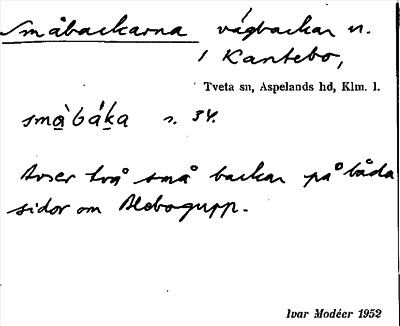 Småbackarna vägbackar n.
i Kantebo,
Tveta sn, Aspelands hd, Klm. l.
små`bák̲a s. 34.
Avser två små backar på båda
sidor om Blebogupp.
Ivar Modéer 1952